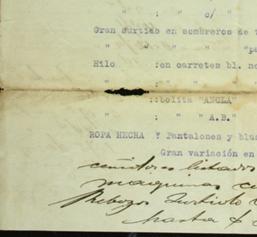 " : " c/ "
Gran surtido en sombreros de
" " " " "pa
Hilo :en carretes bl. no
" : " "
" :bolita "ANCLA"
" : " " A.B."
ROPA HECHA Y Pantalones y blus
Gran variación en
listados
maquinas
Rebozos Surtido
hasta